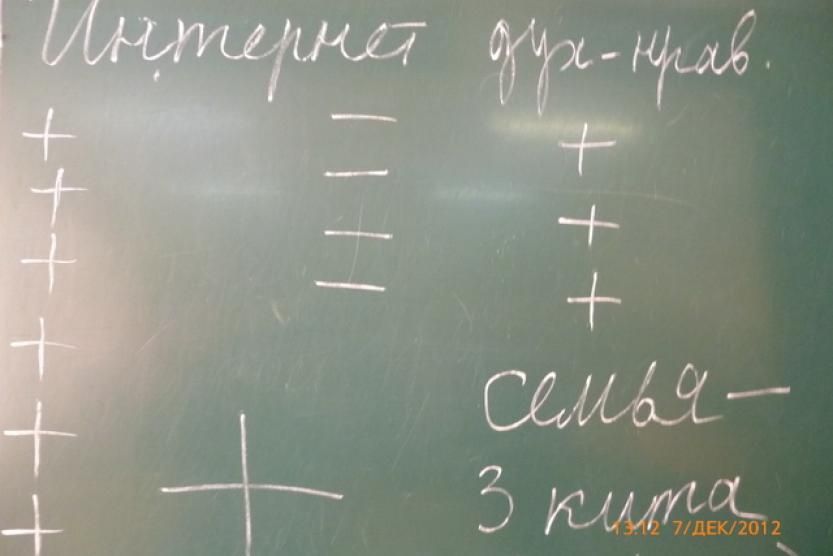 Интернет дух-нрав.
+ — +
+ — +
+ — +
+ —
+
+ +
семья —
3 кита
13:12 7/ДЕК/2012